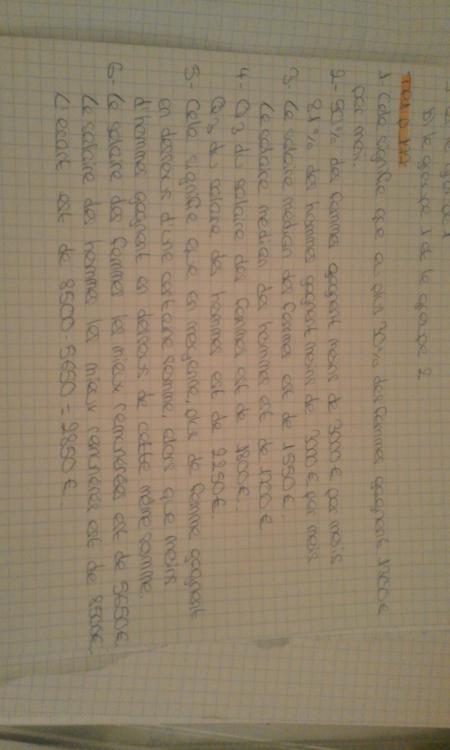 le groupe 1 de le groupe 2
1 Cela signifie que a plus 30% des femmes gagnent 1200€
par mois.
2- 90% des femmes gagnent moins de 3000€ par mois
81% des hommes gagnent moins de 3000€ par mois
3- Le salaire median des femmes est de 1550€.
Le salaire median des hommes est de 1700€
4- Q3 du salaire des femmes est de 1800€.
Q3 du salaire des hommes est de 2250€.
5- Cela signifie que en moyenne, plus de femme gagnent
en dessous d'une certaine somme alors que moins
d'hommes gagnent en dessous de cette même somme.
6- Le salaire des femmes les mieux remunérées est de 5650€
Le salaire des hommes les mieux remunérés est de 8500€.
L'écart est de 8500-5650 = 2850€